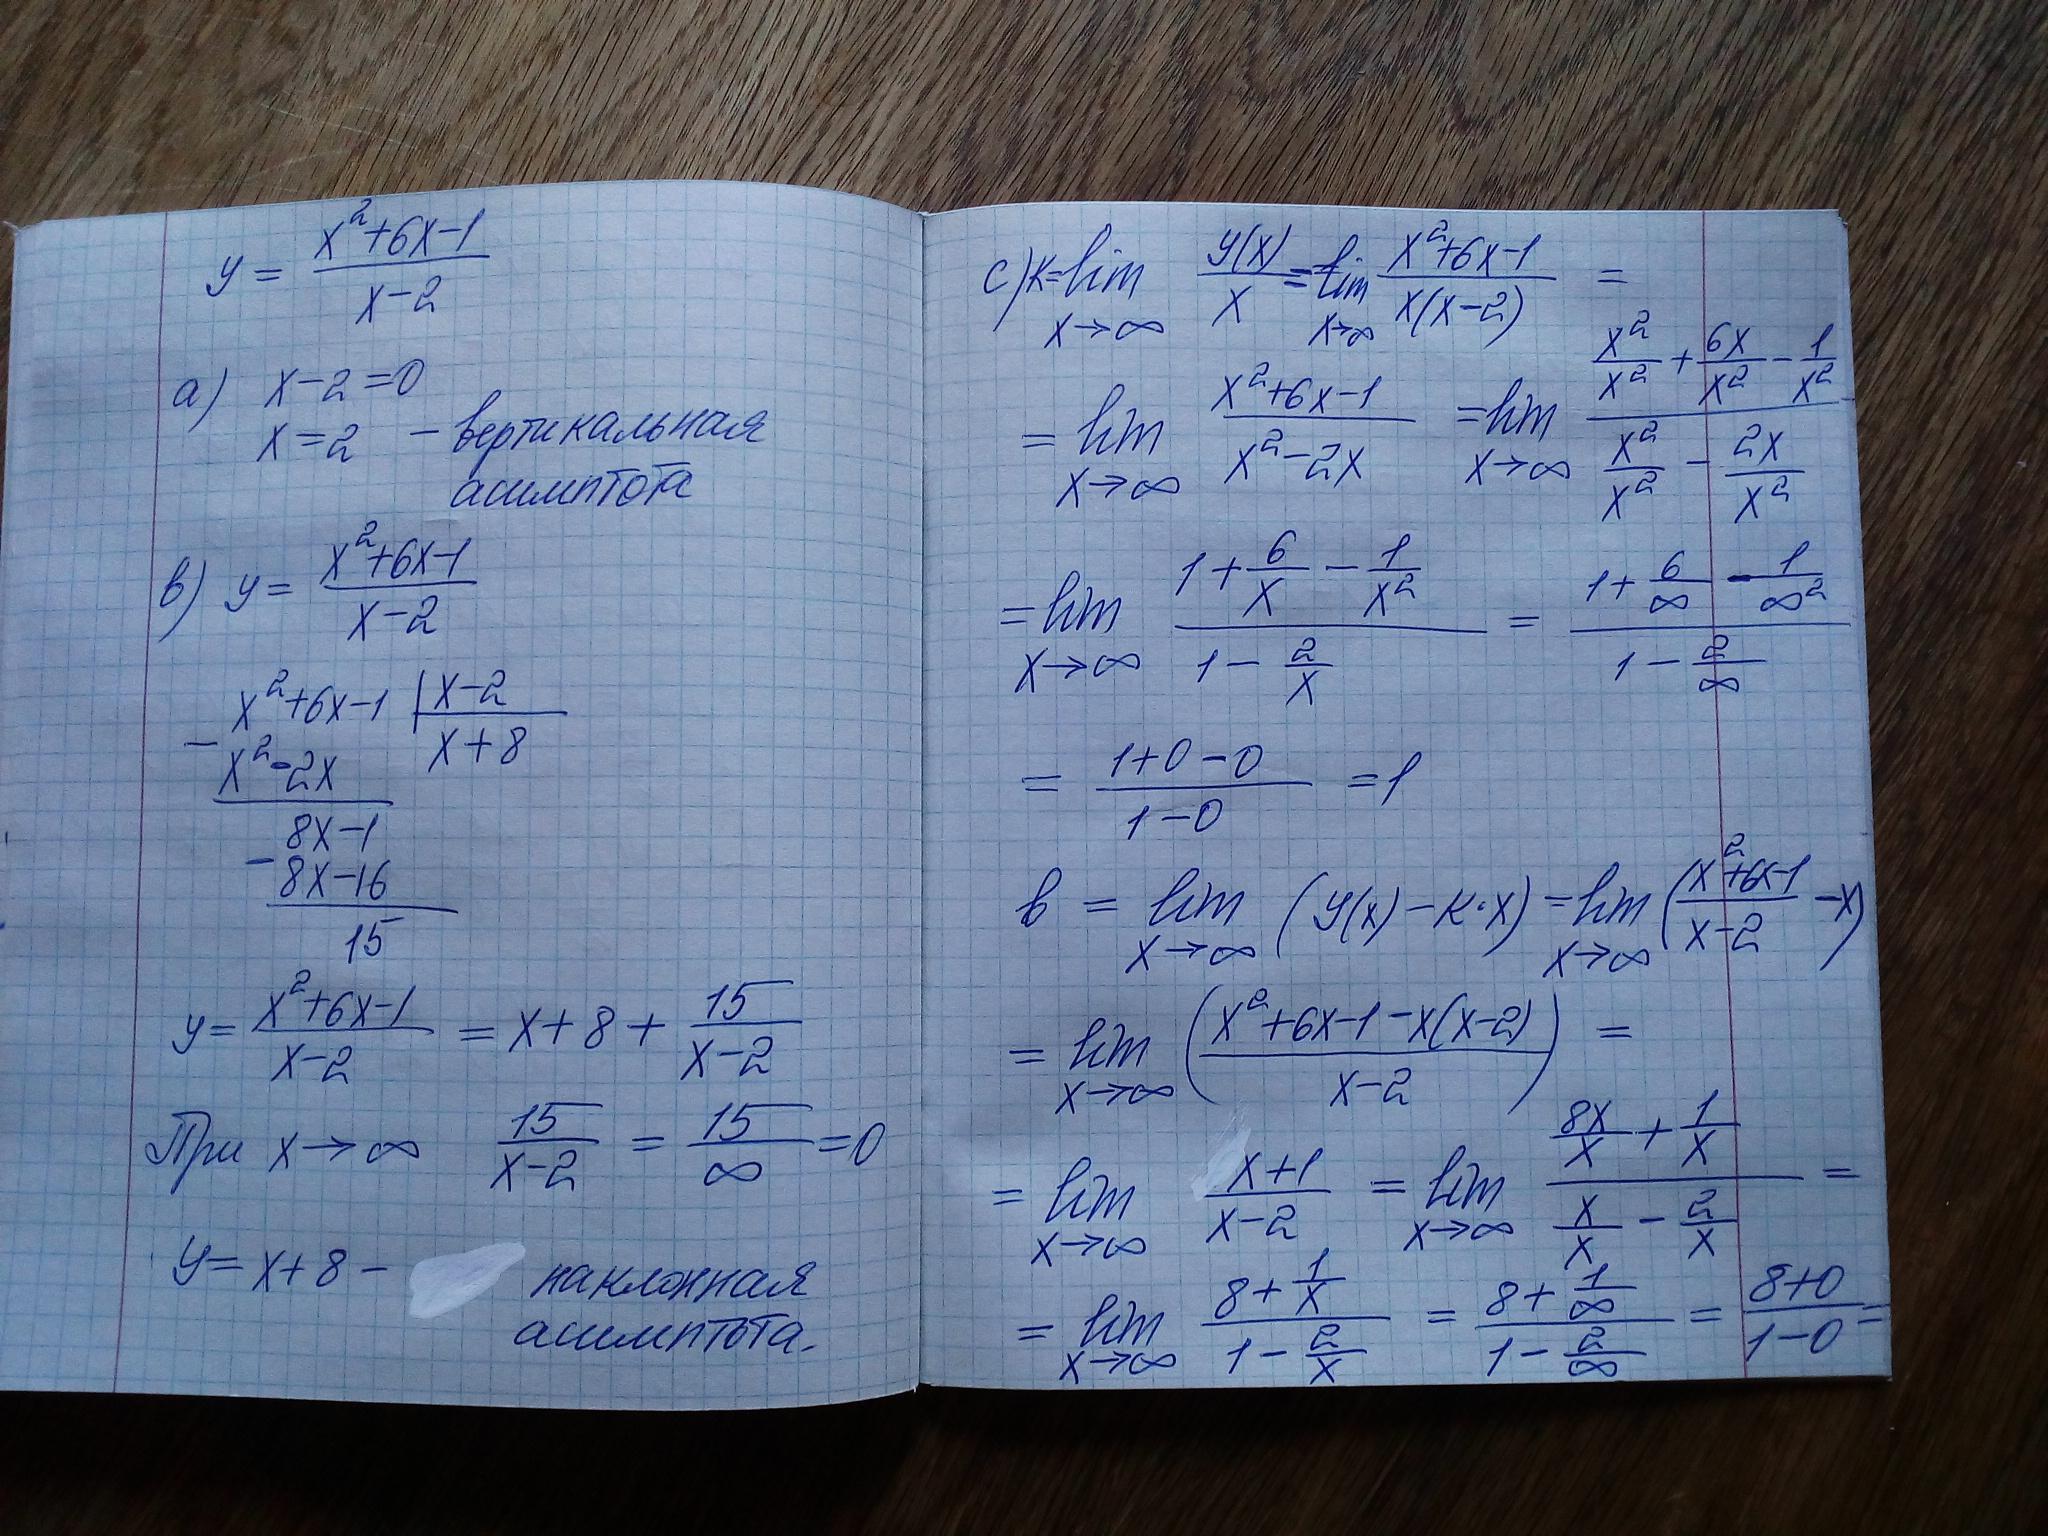 y = (x²+6x-1)/(x-2)
a) x-2=0
x=2 - вертикальная
асимптота
в) y = (x²+6x-1)/(x-2)
x²+6x-1 | x-2
- x²-2x | x+8
8x-1
- 8x-16
15
y = (x²+6x-1)/(x-2) = x+8+ 15/(x-2)
При x→∞ 15/(x-2) = 15/∞ =0
y= x+8 - наклонная
асимптота.
c) K=lim x→∞ y(x)/x = lim x→∞ (x²+6x-1)/(x(x-2)) =
= lim x→∞ (x²+6x-1)/(x²-2x) = lim x→∞ (x²/x² + 6x/x² - 1/x²)/(x²/x² - 2x/x²)
= lim x→∞ (1+ 6/x - 1/x²)/(1- 2/x) = (1+ 6/∞ - 1/∞²)/(1- 2/∞)
= (1+0-0)/(1-0) =1
в = lim x→∞ (y(x)-K·x) = lim x→∞ ((x²+6x-1)/(x-2) -x)
= lim x→∞ ((x²+6x-1-x(x-2))/(x-2)) =
= lim x→∞ (x+1)/(x-2) = lim x→∞ (8x/x + 1/x)/(x/x - 2/x) =
= lim x→∞ (8+ 1/x)/(1- 2/x) = (8+ 1/∞)/(1- 2/∞) = (8+0)/(1-0) =